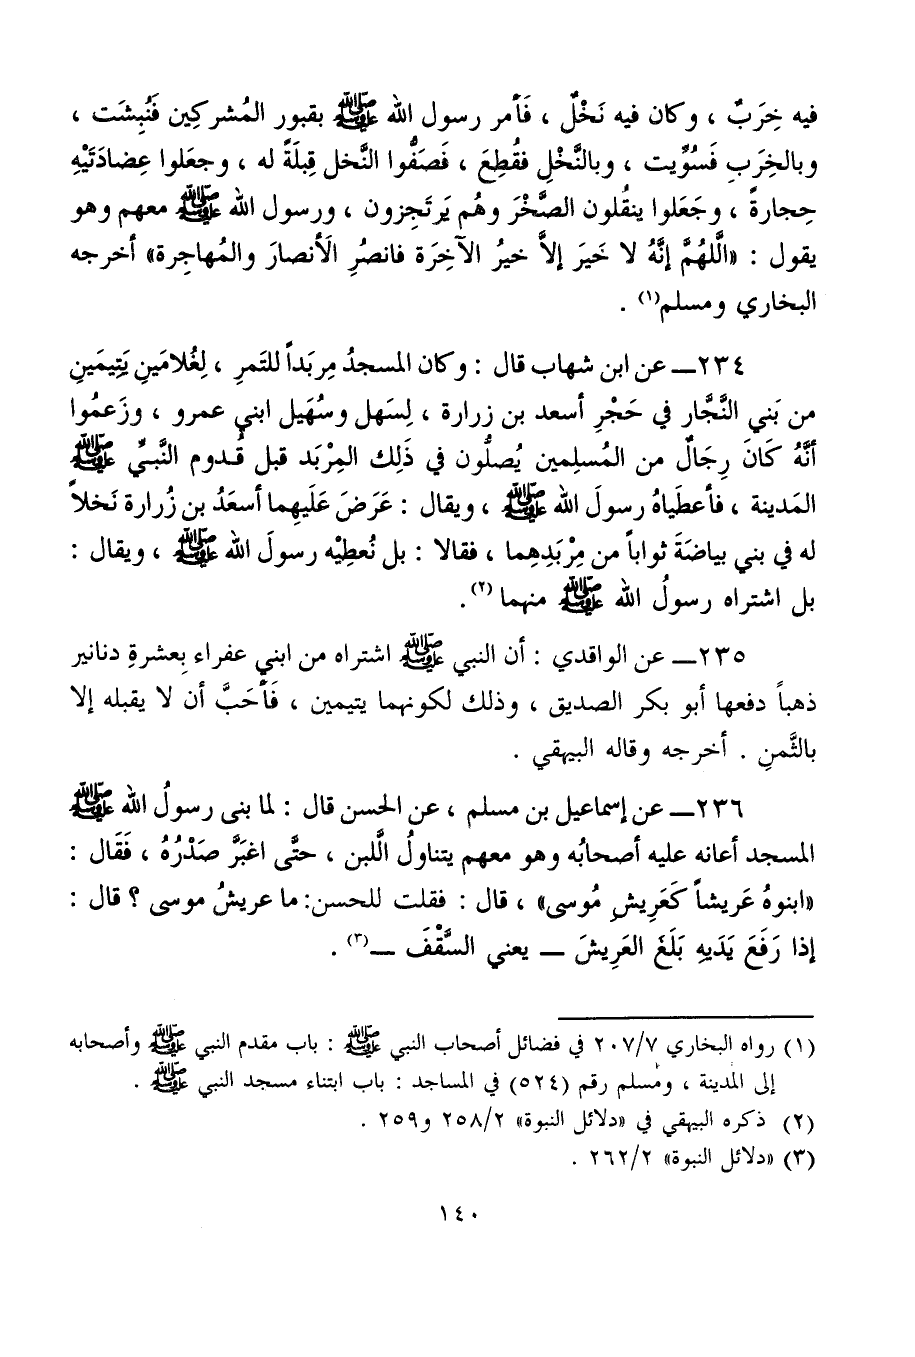 فيه خِرَبٌ ، وكان فيه نَخْلٌ ، فَأمر رسول الله ﷺ بقبور المُشركِين فَنُبِشَت ،
وبالخِرَبِ فَسُوِّيت ، وبالنَّخْلِ فقُطِعَ ، فَصَفُّوا النَّخل قِبلَةً له ، وجعَلوا عِضادَتَيْهِ
حِجارةً ، وجَعَلوا ينقُلون الصَّخْرَ وهُم يَرتَجِزون ، ورسول الله ﷺ معهم وهو
يقول : «الَّلهُمَّ إنَّهُ لا خَيرَ إلاَّ خيرُ الآخِرَة فانصُرِ الَأنصارَ والمُهاجِرة» أخرجه
البخاري ومسلم(١) .
٢٣٤ــ عن ابن شهاب قال : وكان المسجدُ مِربَداً للتَمرِ ، لِغُلامَينِ يَتِيمَينِ
من بَني النَّجَّار في حَجْرِ أسعد بن زرارة ، لِسَهل وسُهَيل ابني عمرو ، وزَعمُوا
أنَّهُ كَانَ رِجَالٌ من المُسلِمين يُصلُّون في ذَلِك المِرْبَد قبل قُدوم النَّبيِّ ﷺ
المَدينة ، فأعطَياهُ رسولَ الله ﷺ ، ويقال : عَرَضَ عَلَيهِما أسعَدُ بن زُرارة نَخلاً
له في بني بياضَةَ ثواباً من مِرْبَدِهِما ، فقالا : بل نُعطِيْه رسولَ الله ﷺ ، ويقال :
بل اشتراه رسولُ الله ﷺ منهما (٢) .
٢٣٥ــ عن الواقدي : أن النبي ﷺ اشتراه من ابني عفراء بِعشرةِ دنانير
ذهباً دفعها أبو بكر الصديق ، وذلك لكونهما يتيمين ، فَأَحَبَّ أن لا يقبله إلا
بالثَّمنِ . أخرجه وقاله البيهقي .
٢٣٦ــ عن إسماعيل بن مسلم ، عن الحسن قال : لما بنى رسولُ الله ﷺ
المسجد أعانه عليه أصحابُه وهو معهم يتناولُ الَّلبن ، حتَّى اغبَرَّ صَدْرُهُ ، فَقَال :
«ابنوهُ عَريشاً كَعَرِيشِ مُوسى» ، قال : فقلت للحسن: ما عريشُ موسى ؟ قال :
إذا رَفَعَ يَدَيهِ بَلَغَ العَرِيشَ ــ يعني السَّقْفَ ــ(٣) .
(١) رواه البخاري ٢٠٧/٧ في فضائل أصحاب النبي ﷺ : باب مقدم النبي ﷺ وأصحابه
إلى المدينة ، ومسلم رقم (٥٢٤) في المساجد : باب ابتناء مسجد النبي ﷺ .
(٢) ذكره البيهقي في «دلائل النبوة» ٢٥٨/٢ و٢٥٩ .
(٣) «دلائل النبوة» ٢٦٢/٢ .
١٤٠